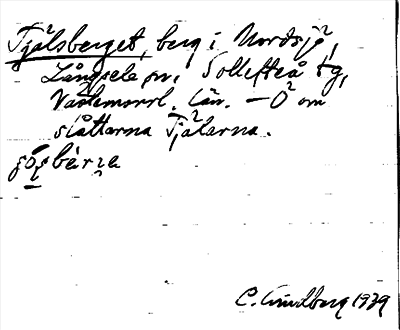 Tjälsberget, berg i Nordsjö,
Långsele sn, Sollefteå tg,
Västernorrl. län. – Ö om
slåttarna Tjälarna.
C. Lindberg 1939